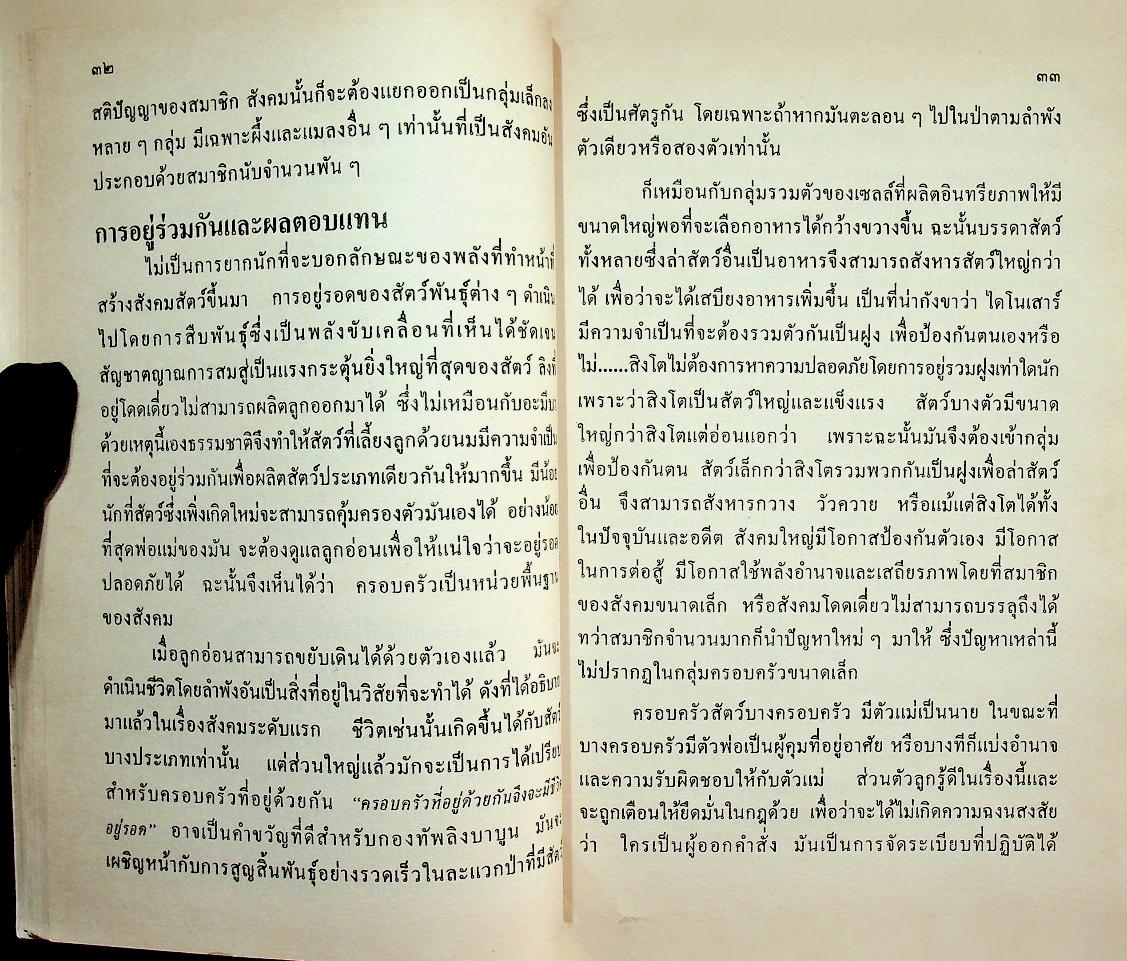 ๓๒
สติปัญญาของสมาชิก สังคมนั้นก็จะต้องแยกออกเป็นกลุ่มเล็กลง
หลาย ๆ กลุ่ม มีเฉพาะผึ้งและแมลงอื่น ๆ เท่านั้นที่เป็นสังคมอัน
ประกอบด้วยสมาชิกนับจำนวนพัน ๆ
การอยู่ร่วมกันและผลตอบแทน
ไม่เป็นการยากนักที่จะบอกลักษณะของพลังที่ทำหน้าที่
สร้างสังคมสัตว์ขึ้นมา การอยู่รอดของสัตว์พันธุ์ต่าง ๆ ดำเนิน
ไปโดยการสืบพันธุ์ซึ่งเป็นพลังขับเคลื่อนที่เห็นได้ชัดเจน
สัญชาตญาณการสมสู่เป็นแรงกระตุ้นยิ่งใหญ่ที่สุดของสัตว์ ลิงที่
อยู่โดดเดี่ยวไม่สามารถผลิตลูกออกมาได้ ซึ่งไม่เหมือนกับอะมีบา
ด้วยเหตุนี้เองธรรมชาติจึงทำให้สัตว์ที่เลี้ยงลูกด้วยนมมีความจำเป็น
ที่จะต้องอยู่ร่วมกันเพื่อผลิตสัตว์ประเภทเดียวกันให้มากขึ้น มีน้อย
นักที่สัตว์ซึ่งเพิ่งเกิดใหม่จะสามารถคุ้มครองตัวมันเองได้ อย่างน้อย
ที่สุดพ่อแม่ของมัน จะต้องดูแลลูกอ่อนเพื่อให้แน่ใจว่าจะอยู่รอด
ปลอดภัยได้ ฉะนั้นจึงเห็นได้ว่า ครอบครัวเป็นหน่วยพื้นฐาน
ของสังคม
เมื่อลูกอ่อนสามารถขยับเดินได้ด้วยตัวเองแล้ว มันจะ
ดำเนินชีวิตโดยลำพังอันเป็นสิ่งที่อยู่ในวิสัยที่จะทำได้ ดังที่ได้อธิบาย
มาแล้วในเรื่องสังคมระดับแรก ชีวิตเช่นนั้นเกิดขึ้นได้กับสัตว์
บางประเภทเท่านั้น แต่ส่วนใหญ่แล้วมักจะเป็นการได้เปรียบ
สำหรับครอบครัวที่อยู่ด้วยกัน “ครอบครัวที่อยู่ด้วยกันจึงจะมีชีวิต
อยู่รอด” อาจเป็นคำขวัญที่ดีสำหรับกองทัพลิงบาบูน มันจะ
เผชิญหน้ากับการสูญสิ้นพันธุ์อย่างรวดเร็วในละแวกป่าที่มีสัตว์
๓๓
ซึ่งเป็นศัตรูกัน โดยเฉพาะถ้าหากมันตะลอน ๆ ไปในป่าตามลำพัง
ตัวเดียวหรือสองตัวเท่านั้น
ก็เหมือนกับกลุ่มรวมตัวของเซลล์ที่ผลิตอินทรียภาพให้มี
ขนาดใหญ่พอที่จะเลือกอาหารได้กว้างขวางขึ้น ฉะนั้นบรรดาสัตว์
ทั้งหลายซึ่งล่าสัตว์อื่นเป็นอาหารจึงสามารถสังหารสัตว์ใหญ่กว่า
ได้ เพื่อว่าจะได้เสบียงอาหารเพิ่มขึ้น เป็นที่น่ากังขาว่า ไดโนเสาร์
มีความจำเป็นที่จะต้องรวมตัวกันเป็นฝูง เพื่อป้องกันตนเองหรือ
ไม่......สิงโตไม่ต้องการหาความปลอดภัยโดยการอยู่รวมฝูงเท่าใดนัก
เพราะว่าสิงโตเป็นสัตว์ใหญ่และแข็งแรง สัตว์บางตัวมีขนาด
ใหญ่กว่าสิงโตแต่อ่อนแอกว่า เพราะฉะนั้นมันจึงต้องเข้ากลุ่ม
เพื่อป้องกันตน สัตว์เล็กกว่าสิงโตรวมพวกกันเป็นฝูงเพื่อล่าสัตว์
อื่น จึงสามารถสังหารกวาง วัวควาย หรือแม้แต่สิงโตได้ทั้ง
ในปัจจุบันและอดีต สังคมใหญ่มีโอกาสป้องกันตัวเอง มีโอกาส
ในการต่อสู้ มีโอกาสใช้พลังอำนาจและเสถียรภาพโดยที่สมาชิก
ของสังคมขนาดเล็ก หรือสังคมโดดเดี่ยวไม่สามารถบรรลุถึงได้
ทว่าสมาชิกจำนวนมากก็นำปัญหาใหม่ ๆ มาให้ ซึ่งปัญหาเหล่านี้
ไม่ปรากฏในกลุ่มครอบครัวขนาดเล็ก
ครอบครัวสัตว์บางครอบครัว มีตัวแม่เป็นนาย ในขณะที่
บางครอบครัวมีตัวพ่อเป็นผู้คุมที่อยู่อาศัย หรือบางทีก็แบ่งอำนาจ
และความรับผิดชอบให้กับตัวแม่ ส่วนตัวลูกรู้ดีในเรื่องนี้และ
จะถูกเตือนให้ยึดมั่นในกฎด้วย เพื่อว่าจะได้ไม่เกิดความฉงนสงสัย
ว่า ใครเป็นผู้ออกคำสั่ง มันเป็นการจัดระเบียบที่ปฏิบัติได้